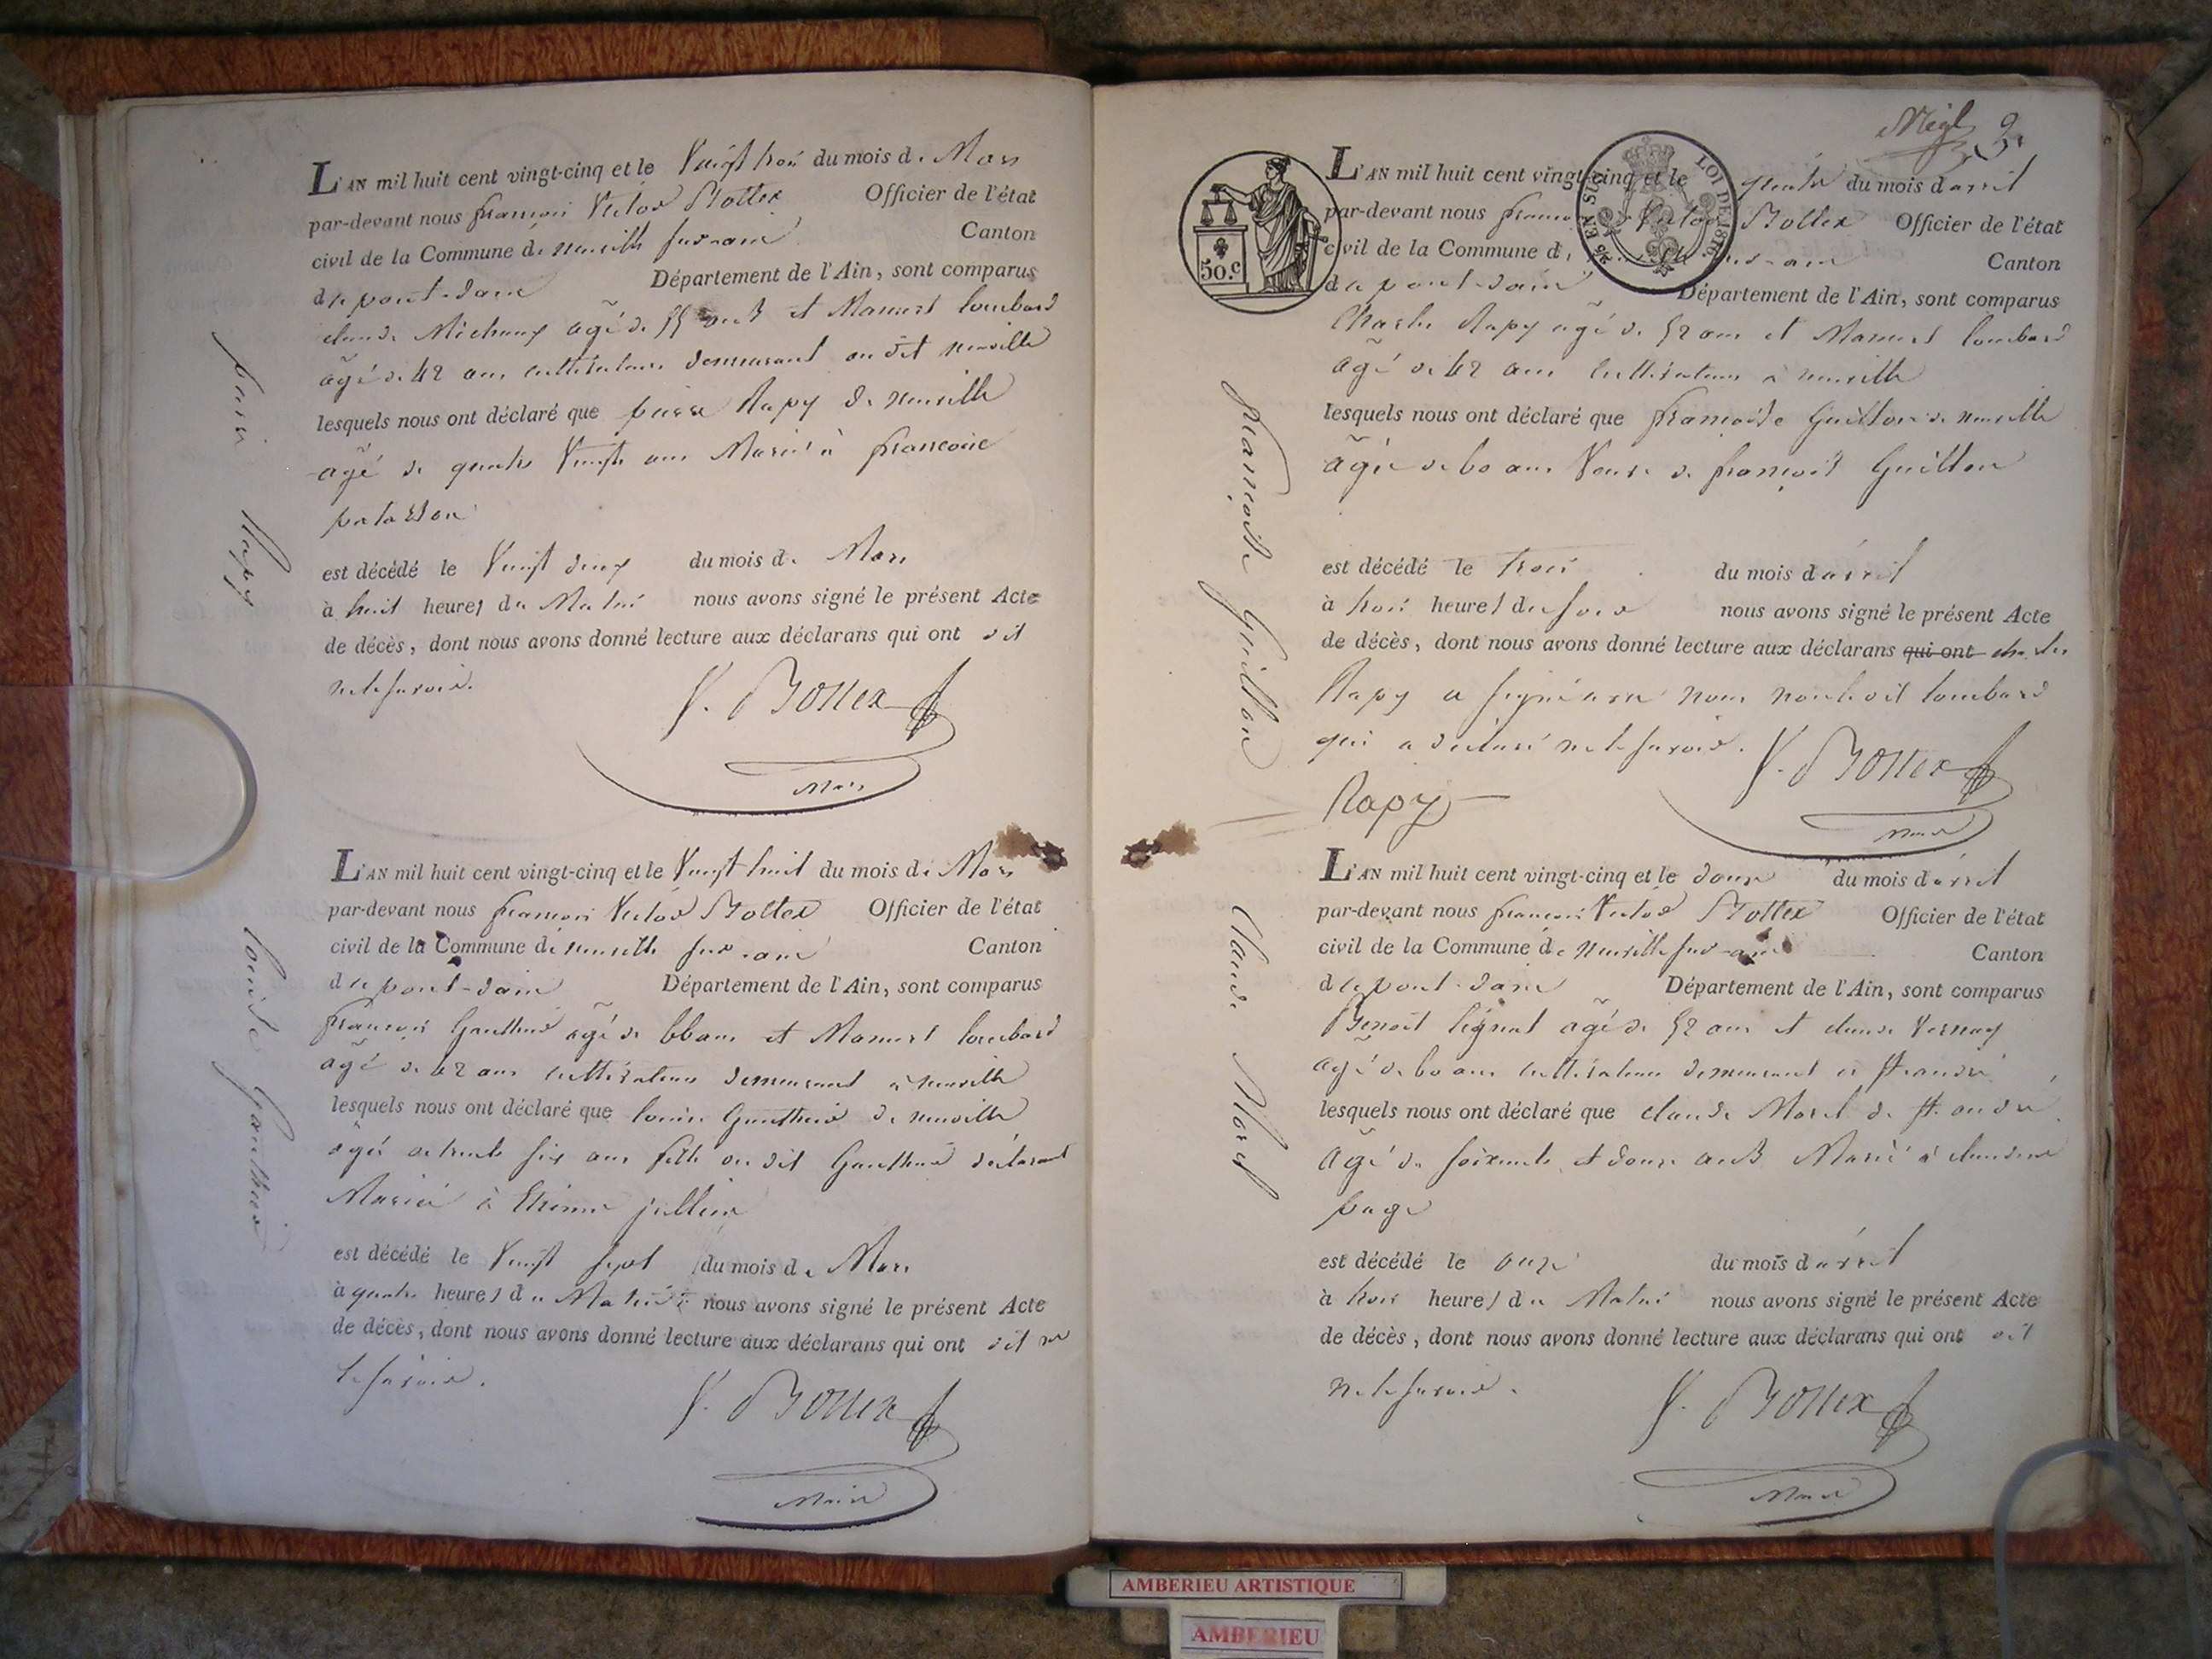 L'AN mil huit cent vingt-cinq et le Vingt trois du mois de Mars
par-devant nous françois Victor Bottex Officier de l'état
civil de la Commune de neuville sur-ain Canton
de pont-dain Département de l'Ain, sont comparus
claude Michaux agé de 55 ans et Manuel lombard
agé de 42 ans cultivateurs demeurant au dit neuville
lesquels nous ont déclaré que pierre Rapy de neuville
agé de quatre Vingts ans Marié à françoise
est décédé le Vingt deux du mois de Mars
à huit heures du Matin nous avons signé le présent Acte
de décès, dont nous avons donné lecture aux déclarans qui ont dit
ne le savoir.
V. Bottex
Maire
pierre Rapy
L'AN mil huit cent vingt-cinq et le Vingt huit du mois de Mars
par-devant nous françois Victor Bottex Officier de l'état
civil de la Commune de neuville sur-ain Canton
de pont-dain Département de l'Ain, sont comparus
françois Gauthier agé de 66 ans et Manuel lombard
agé de 42 ans cultivateurs demeurant à neuville
lesquels nous ont déclaré que louise Gauthier de neuville
agée de trente six ans fille du dit Gauthier déclarant
Mariée à Etienne jullien
est décédé le Vingt sept du mois de Mars
à quatre heures du Matin nous avons signé le présent Acte
de décès, dont nous avons donné lecture aux déclarans qui ont dit ne
le savoir.
V. Bottex
Maire
louise Gauthier
50.c
LOI DE 1816
L'AN mil huit cent vingt-cinq et le quatre du mois d'avril
par-devant nous françois Victor Bottex Officier de l'état
civil de la Commune de neuville sur-ain Canton
de pont-dain Département de l'Ain, sont comparus
Charles Rapy agé de 52 ans et Manuel lombard
agé de 42 ans cultivateurs à neuville
lesquels nous ont déclaré que françoise Guillon de neuville
agée de 60 ans Veuve de françois Guillon
est décédé le trois du mois d'avril
à trois heures du soir nous avons signé le présent Acte
de décès, dont nous avons donné lecture aux déclarans qui ont charles
Rapy a signé avec nous non le dit lombard
qui a déclaré ne le savoir.
V. Bottex
Maire
Rapy
françoise Guillon
L'AN mil huit cent vingt-cinq et le douze du mois d'avril
par-devant nous françois Victor Bottex Officier de l'état
civil de la Commune de neuville sur-ain Canton
de pont-dain Département de l'Ain, sont comparus
Benoit agé de 52 ans et claude Vernay
agé de 60 ans cultivateurs demeurant à St andré
lesquels nous ont déclaré que claude Morel de St. andré
agé de soixante et douze ans Marié à claudine
page
est décédé le onze du mois d'avril
à trois heures du Matin nous avons signé le présent Acte
de décès, dont nous avons donné lecture aux déclarans qui ont dit
ne le savoir.
V. Bottex
Maire
Claude Morel
AMBERIEU ARTISTIQUE
AMBERIEU